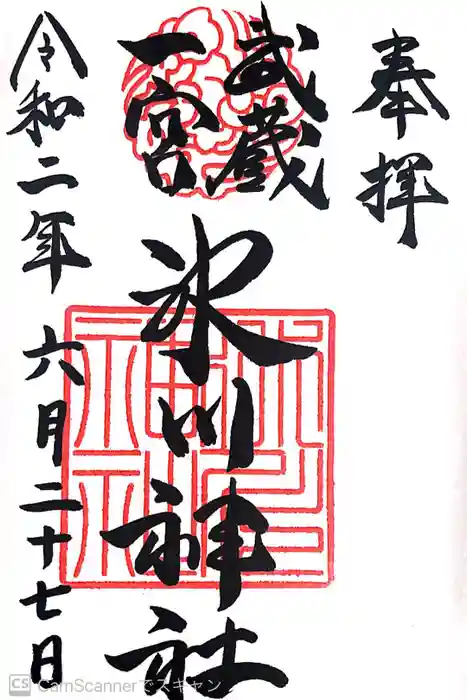 奉拝
武蔵
一宮
氷川神社
令和二年 六月二十七日
CS CamScannerでスキャン